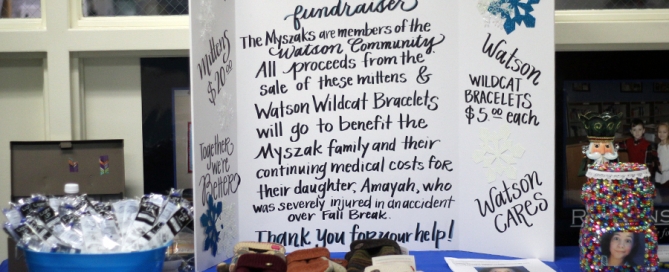 fundraiser
The Myszaks are members of the
Watson Community
All proceeds from the
sale of these mittens &
Watson Wildcat Bracelets
will go to benefit the
Myszak family and their
continuing medical costs for
their daughter, Amayah, who
was severely injured in an accident
over Fall Break.
Thank you for your help!
Mittens
$20.00
Together
we're
Better
Watson
WILDCAT
BRACELETS
$5.00 each
Watson
CARES